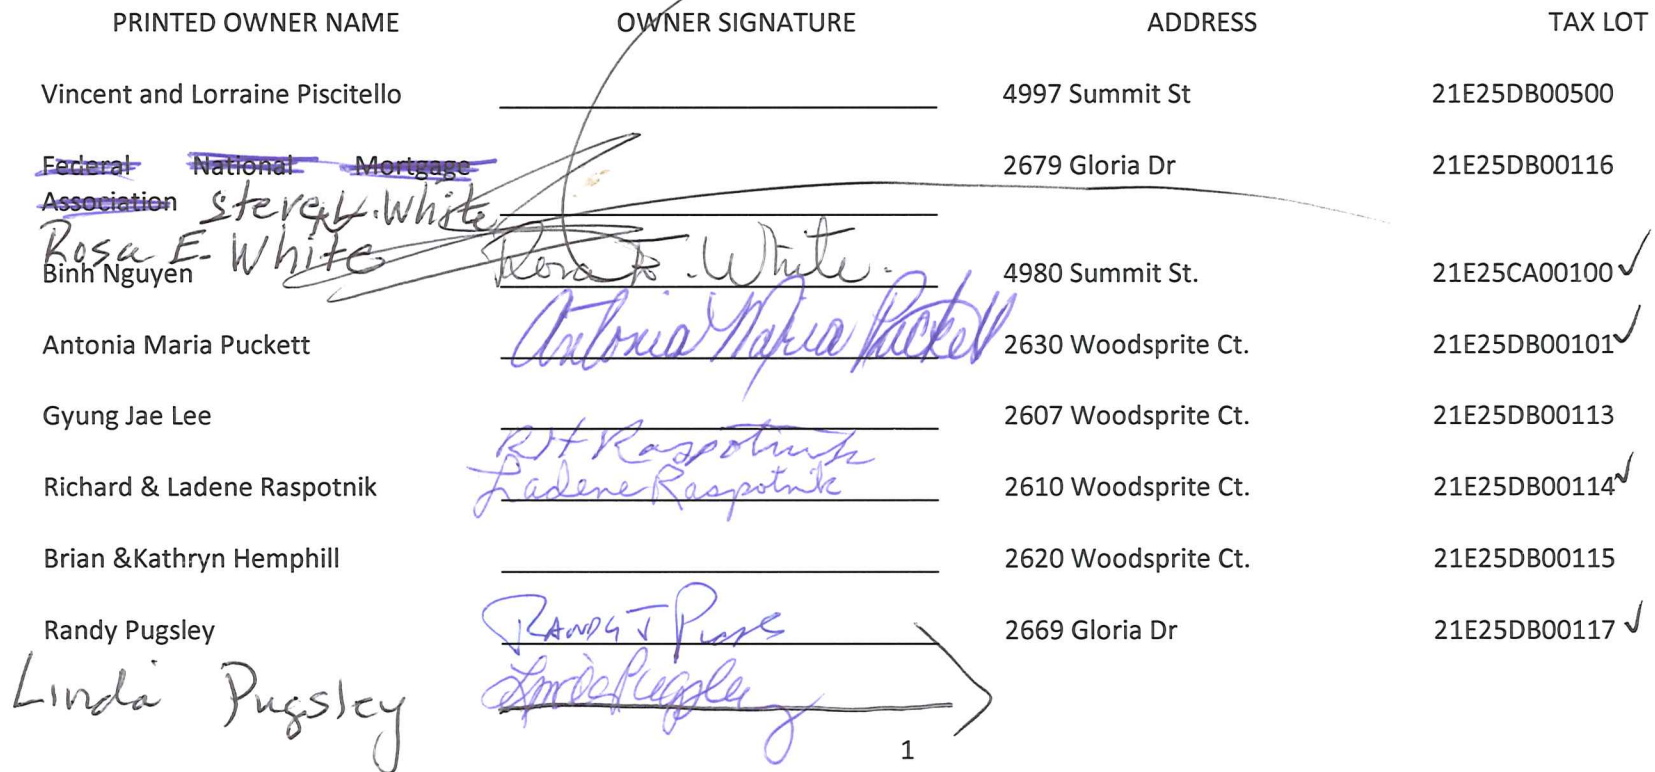 PRINTED OWNER NAME OWNER SIGNATURE ADDRESS TAX LOT
Vincent and Lorraine Piscitello 4997 Summit St 21E25DB00500
Federal National Mortgage 2679 Gloria Dr 21E25DB00116
Association Steve L. White
Rosa E. White Rosa E. White.
Binh Nguyen 4980 Summit St. 21E25CA00100 ✓
Antonia Maria Puckett Antonia Maria Puckett 2630 Woodsprite Ct. 21E25DB00101 ✓
Gyung Jae Lee 2607 Woodsprite Ct. 21E25DB00113
RH Raspotnik
Richard & Ladene Raspotnik Ladene Raspotnik 2610 Woodsprite Ct. 21E25DB00114 ✓
Brian &Kathryn Hemphill 2620 Woodsprite Ct. 21E25DB00115
Randy Pugsley Randy J 2669 Gloria Dr 21E25DB00117 ✓
Linda Pugsley Linda Pugsley
1